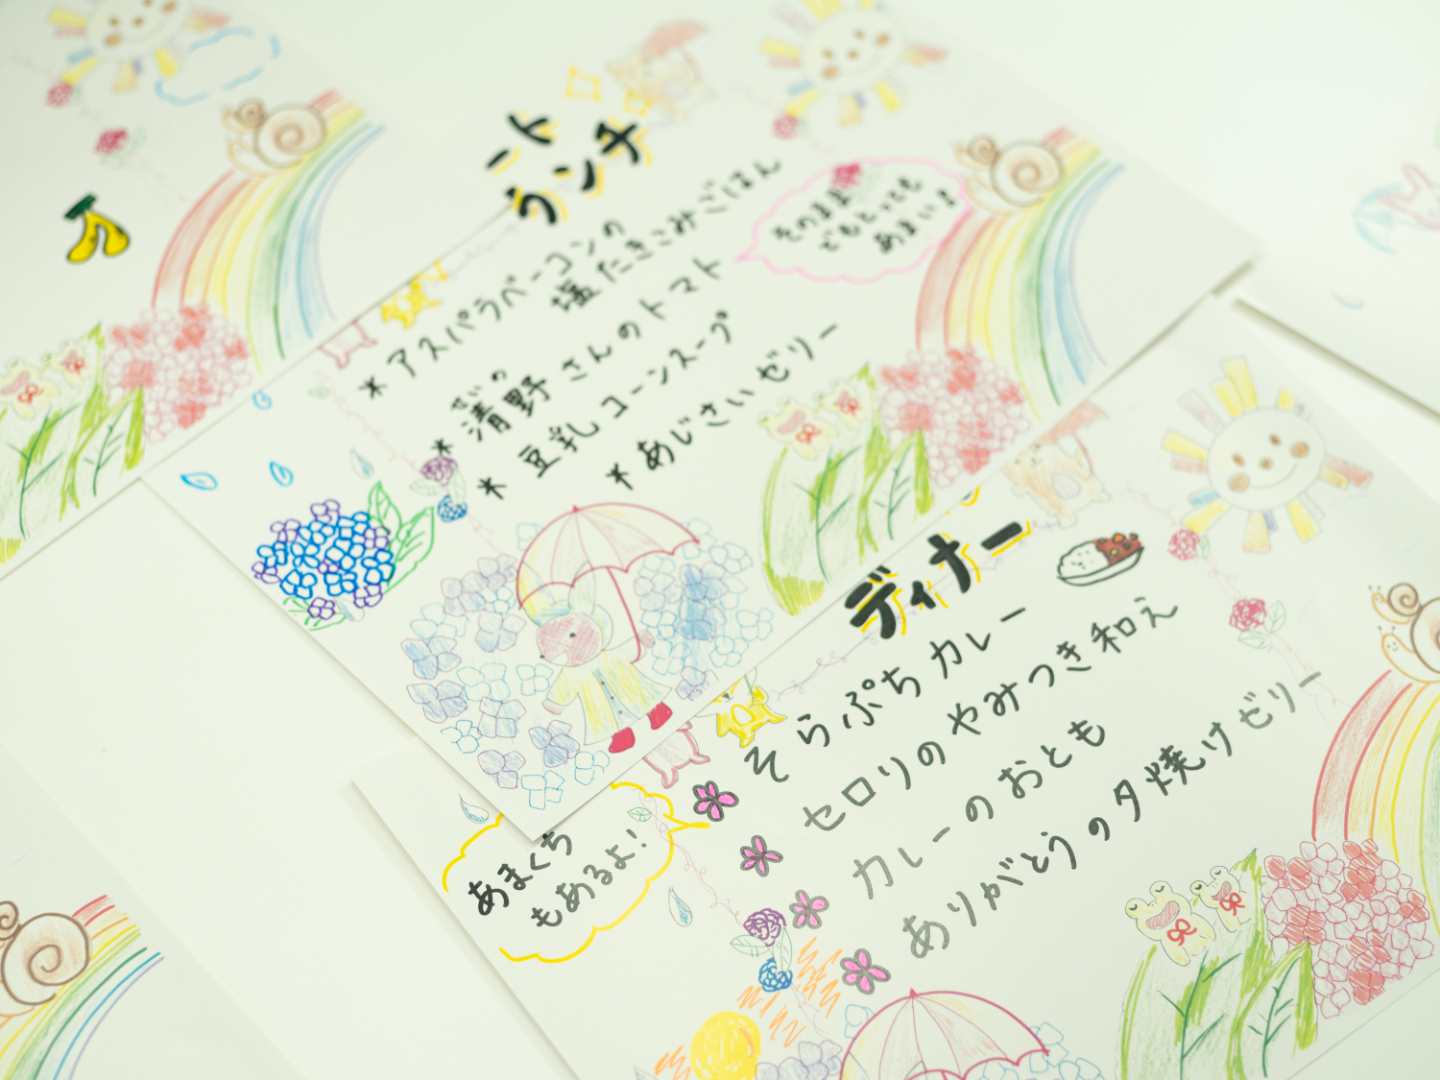 ート
ランチ
* アスパラベーコンの
塩たきこみごはん
せいの
* 清野さんのトマト
* 豆乳コーンスープ
* あじさいゼリー
そのまま
でもとっても
あまい!
ディナー
そらぷちカレー
セロリのやみつき和え
カレーのおとも
ありがとうの夕焼けゼリー
あまくち
もあるよ!